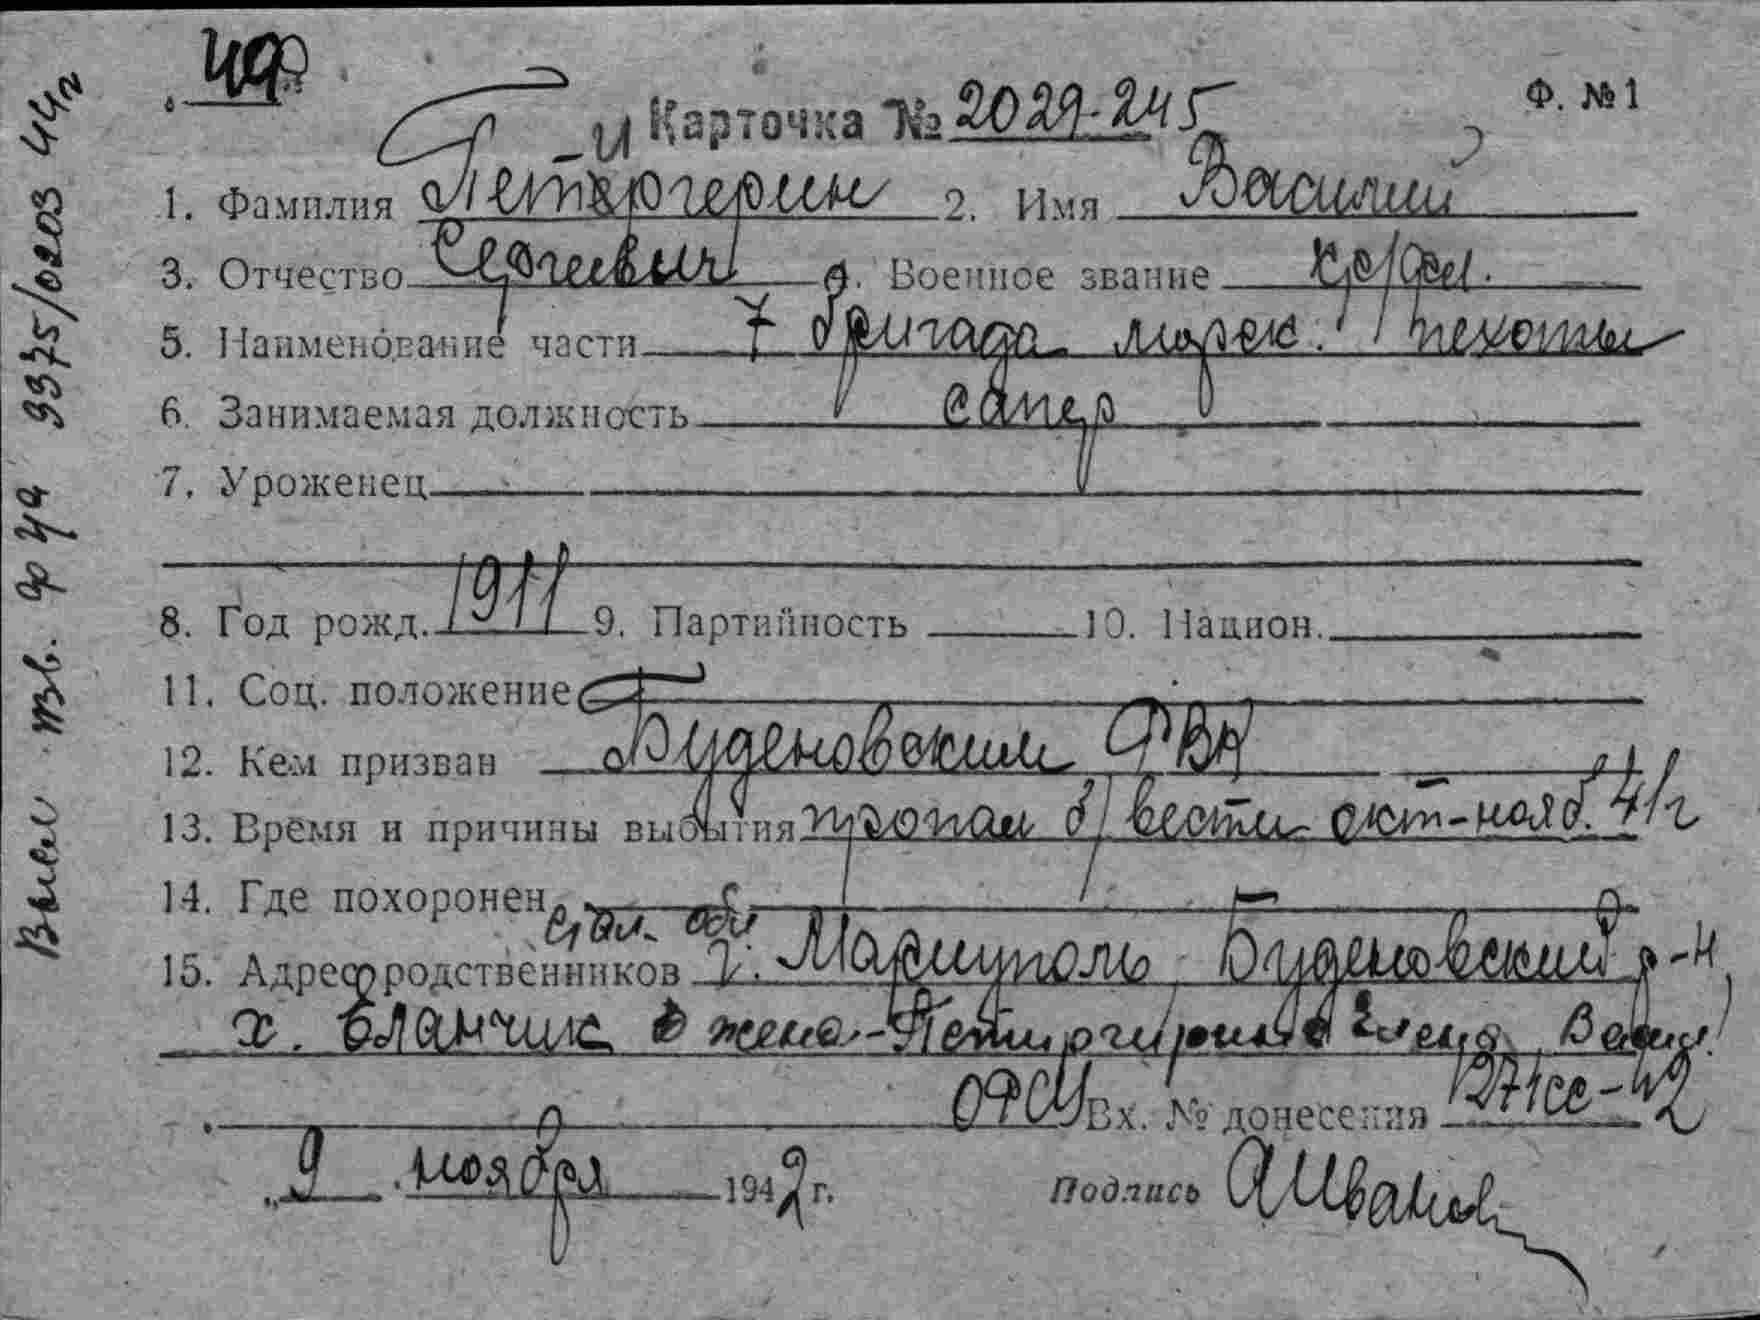 Карточка № 2029-245
Ф. № 1
1. Фамилия Петергерин 2. Имя Василий
3. Отчество Сергиевич 4. Военное звание кр/фл.
5. Наименование части 7 бригада морск. пехоты
6. Занимаемая должность сапер
7. Уроженец
8. Год рожд. 1911 9. Партийность 10. Национ.
11. Соц. положение
12. Кем призван Буденовским РВК
13. Время и причины выбытия пропал б/вести окт-нояб. 41 г
14. Где похоронен
Стал. обл
15. Адрес родственников г. Мариуполь, Буденовский р-н,
х. Еланчик жена - Елена Васил.
Вх. № донесения 1271сс-42
9 ноября 1942 г. Подпись АИванов
Выел изв. ф 4а 9375/0203 44г